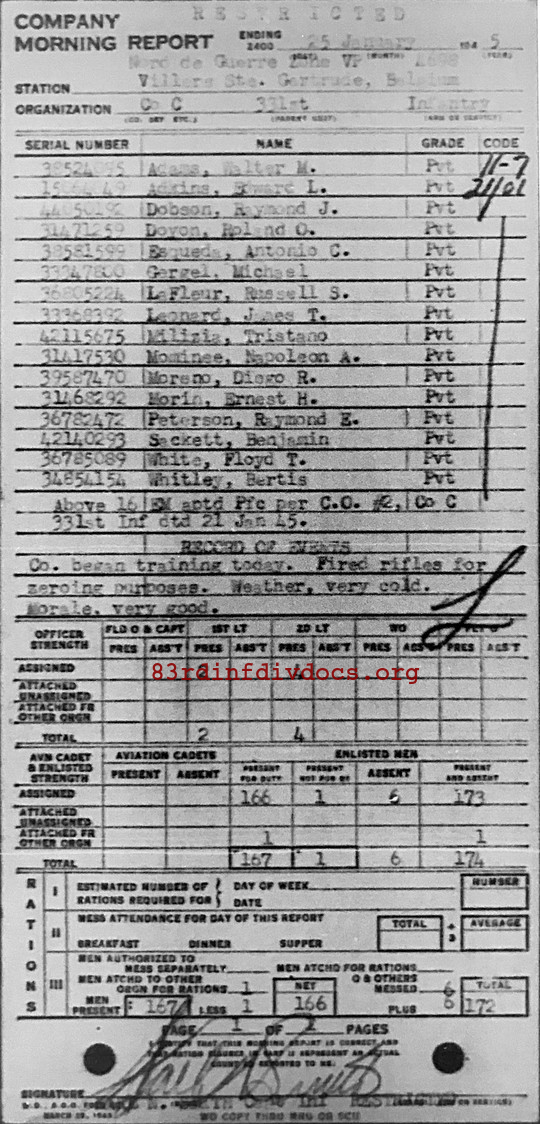 RESTRICTED
COMPANY
MORNING REPORT ENDING 2400 25 January 194 5
(DATE) (MONTH) (YEAR)
Nord de Guerre Zone VP A698
STATION Villers Ste. Gertrude, Belgium
ORGANIZATION Co C 331st Infantry
(CO. DET ETC.) (PARENT UNIT) (ARM OR SERVICE)
SERIAL NUMBER NAME GRADE CODE
Adams, Walter M. Pvt 11-7
Adkins, Edward L. Pvt
Dobson, Raymond J. Pvt
31471259 Doyon, Roland O. Pvt
38581599 Esqueda, Antonio C. Pvt
33347800 Gergel, Michael Pvt
36805224 LaFleur, Russell S. Pvt
33368392 Leonard, James T. Pvt
42115675 Milizia, Tristano Pvt
31417530 Mominee, Napoleon A. Pvt
39587470 Moreno, Diego R. Pvt
31468292 Morin, Ernest H. Pvt
36782472 Peterson, Raymond E. Pvt
42140293 Sackett, Benjamin Pvt
36785089 White, Floyd T. Pvt
34854154 Whitley, Bertis Pvt
Above 16 EM aptd Pfc per C.O. #2, Co C
331st Inf dtd 21 Jan 45.
RECORD OF EVENTS
Co. began training today. Fired rifles for
zeroing purposes. Weather, very cold.
Morale, very good.
OFFICER STRENGTH FLD O & CAPT 1ST LT 2D LT WO FLT O
PRES ABS'T PRES ABS'T PRES ABS'T PRES ABS'T PRES ABS'T
ASSIGNED 2 4
83rdinfdivdocs.org
ATTACHED UNASSIGNED
ATTACHED FR OTHER ORGN
TOTAL 2 4
AVN CADET & ENLISTED STRENGTH AVIATION CADETS ENLISTED MEN
PRESENT ABSENT PRESENT FOR DUTY PRESENT NOT FOR DY ABSENT PRESENT AND ABSENT
ASSIGNED 166 1 6 173
ATTACHED UNASSIGNED
ATTACHED FR OTHER ORGN 1 1
TOTAL 167 1 6 174
RATIONS
I ESTIMATED NUMBER OF RATIONS REQUIRED FOR DAY OF WEEK DATE NUMBER
II MESS ATTENDANCE FOR DAY OF THIS REPORT TOTAL ÷ 3 AVERAGE
BREAKFAST DINNER SUPPER
III MEN AUTHORIZED TO MESS SEPARATELY MEN ATCHD FOR RATIONS
MEN ATCHD TO OTHER ORGN FOR RATIONS 1 NET O & OTHERS MESSED 6 TOTAL
MEN PRESENT 167 LESS 1 166 PLUS 6 172
PAGE 1 OF 2 PAGES
I CERTIFY THAT THIS MORNING REPORT IS CORRECT AND
SIGNATURE
RESTRICTED